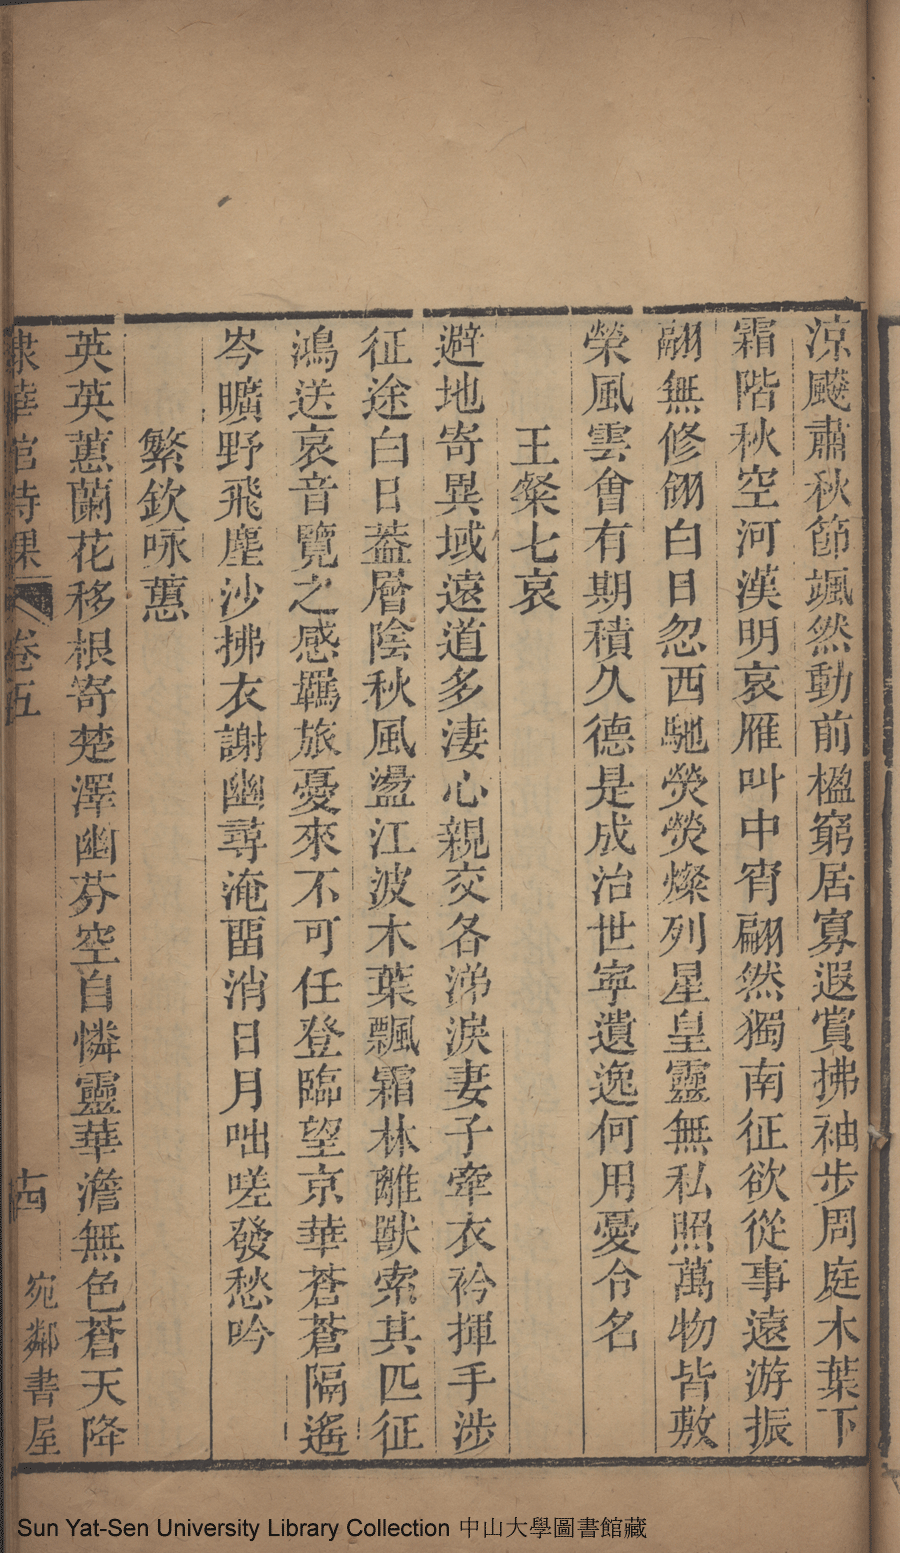 涼颸肅秋節颯然動前楹窮居寡遐賞拂袖步周庭木葉下
霜階秋空河漢明哀雁叫中宵翩然獨南征欲從事遠游振
翮無修翎白日忽西馳熒熒燦列星皇靈無私照萬物皆敷
榮風雲會有期積久德是成治世寧遺逸何用憂令名
王粲七哀
避地寄異域遠道多淒心親交各涕淚妻子牽衣衿揮手涉
征途白日葢層陰秋風盪江波木葉飄霜林離獸索其匹征
鴻送哀音覽之感羈旅憂來不可任登臨望京華蒼蒼隔遙
岑曠野飛塵沙拂衣謝幽尋淹畱消日月咄嗟發愁吟
繁欽咏蕙
英英蕙蘭花移根寄楚澤幽芬空自憐靈華澹無色蒼天降
棣華館詩課
卷五
十四
宛鄰書屋
Sun Yat-Sen University Library Collection 中山大學圖書館藏